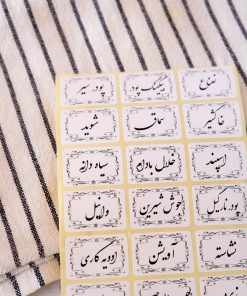 نعناع
بیکینگ پودر
پودر سیر
خاکشیر
سماق
شوید
اسپند
خلال بادام
سیاه دانه
پودر نارگیل
جوش شیرین
وانیل
نشاسته
آویشن
ادویه کاری